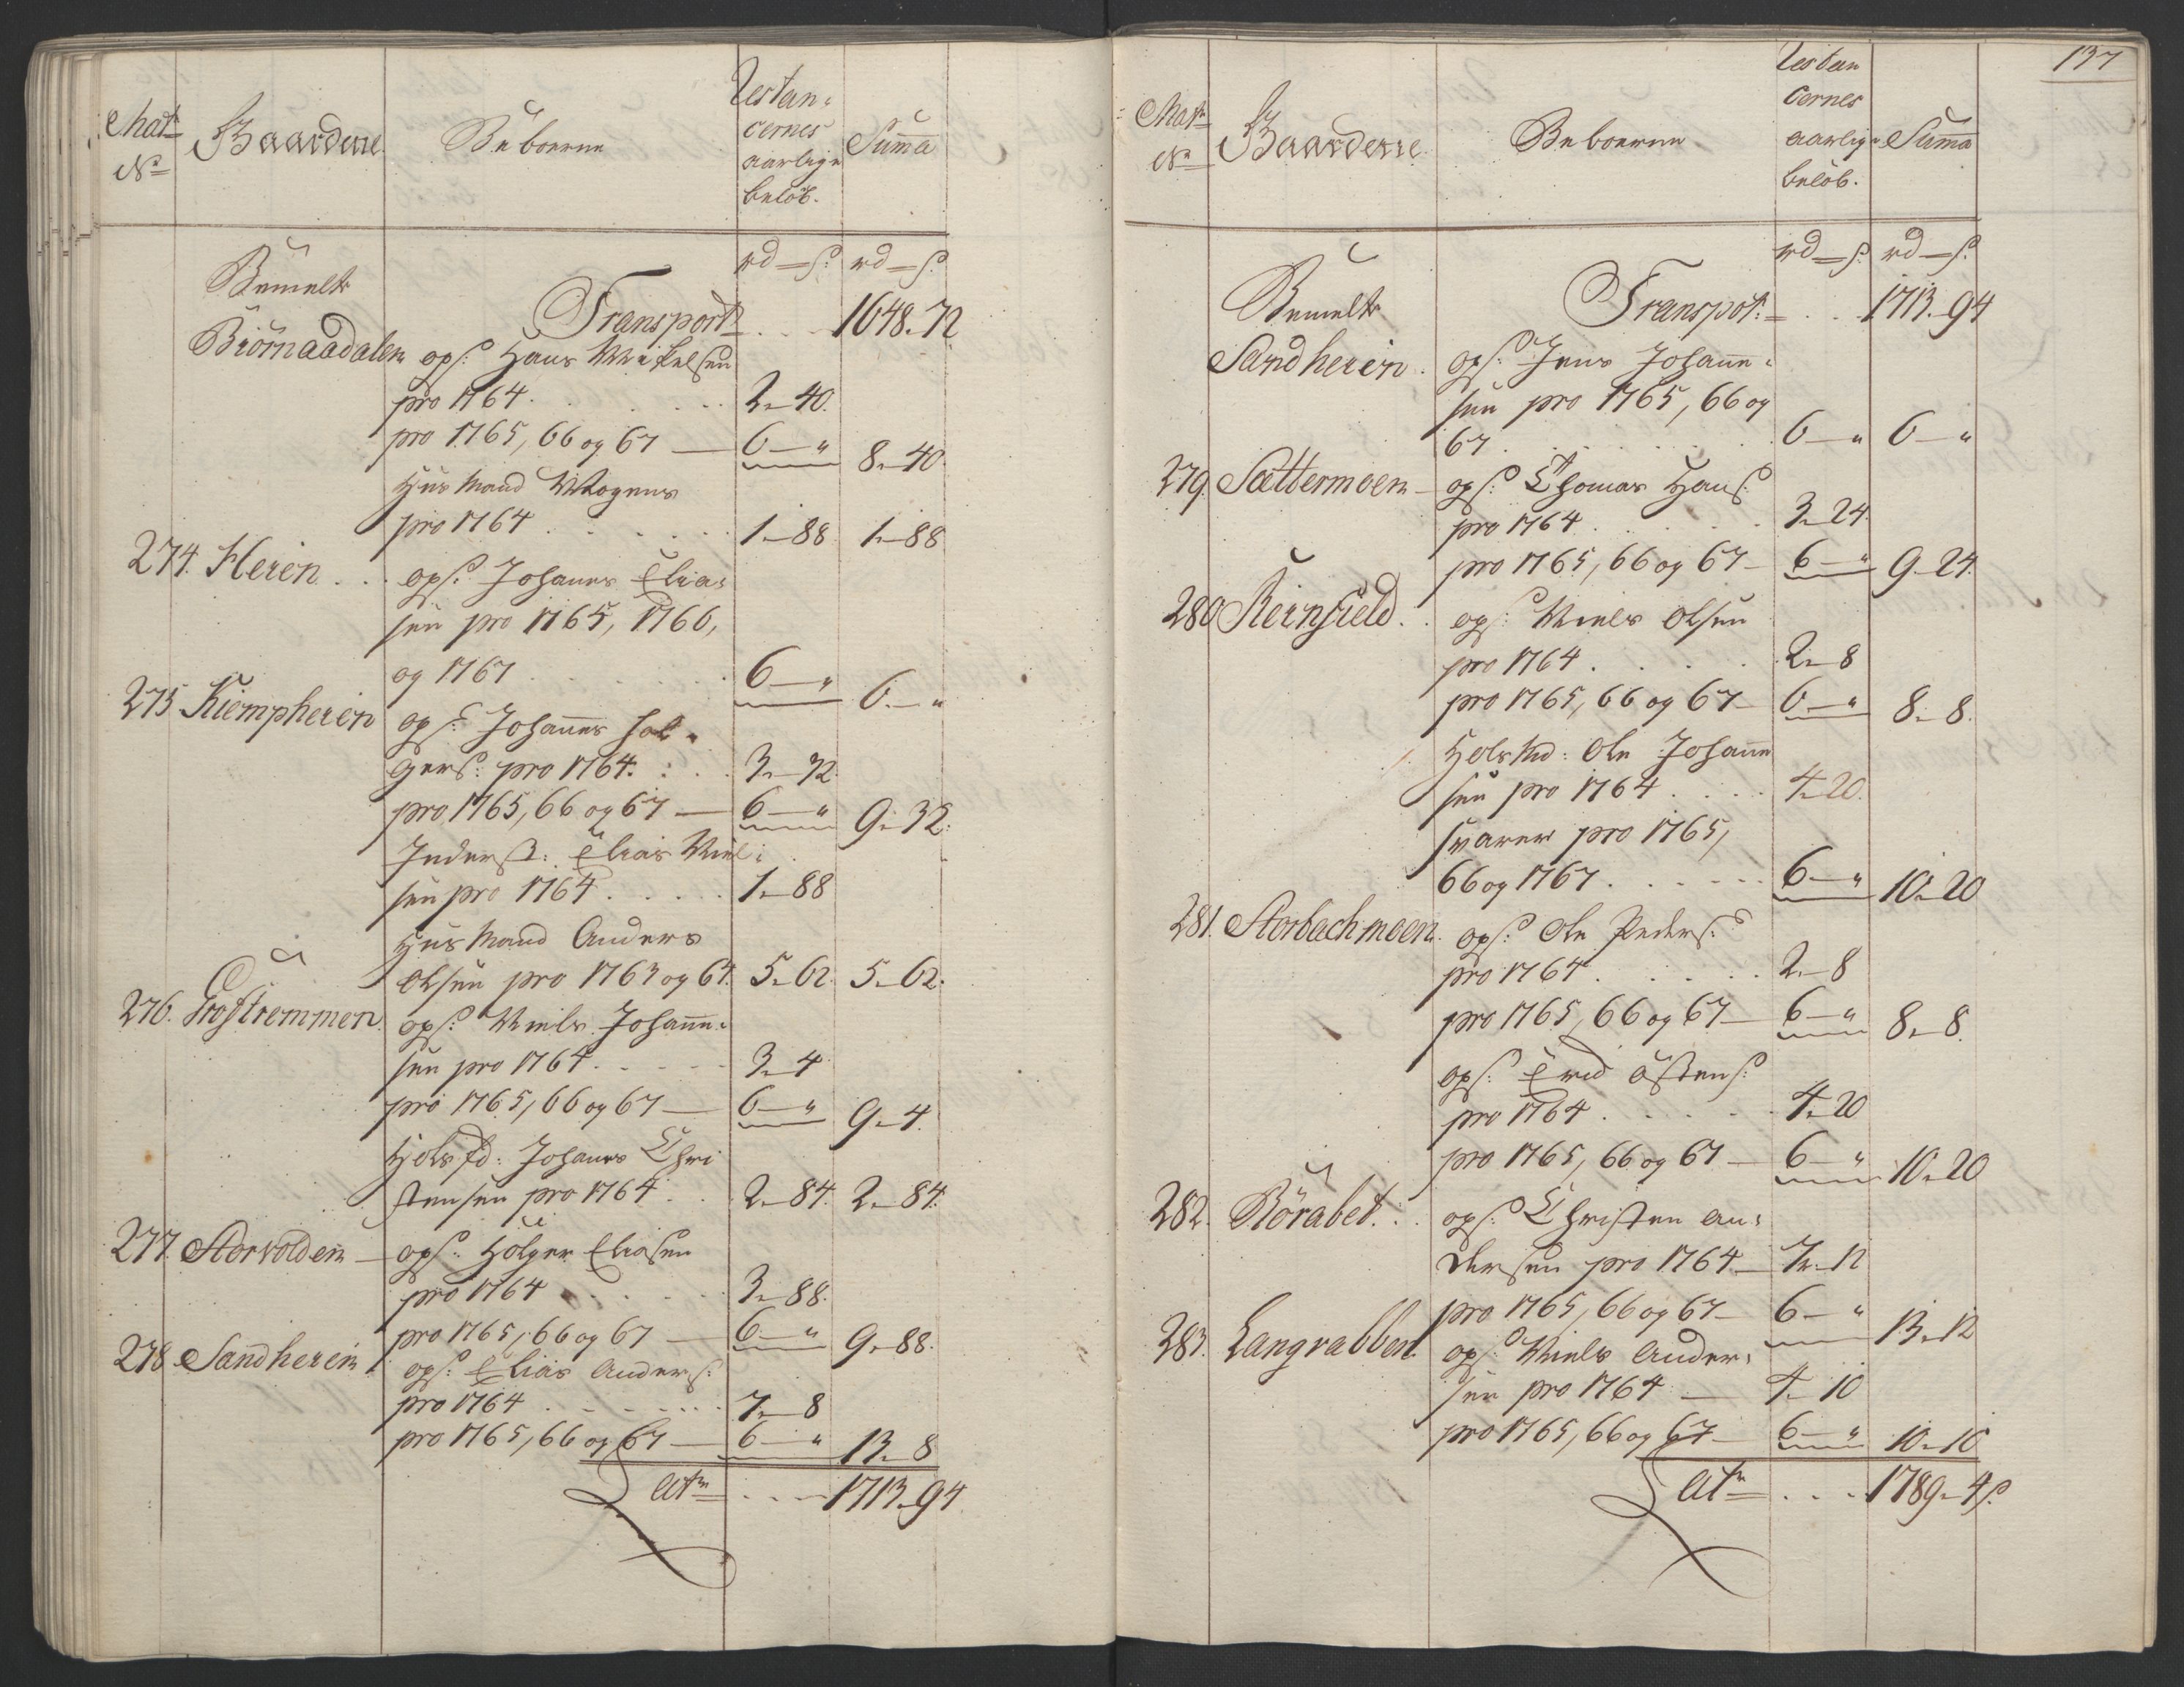 Mat:
No
Gaarderne
Beboerne
Restan-
cernes
aarlige
beløb.
Summa
rd — s: rd — s:
Bemelte
Transport . . . 1648. 72
Biörnaadalen ops: Hans Mikelsen
pro 1764 . . . 2. 40.
pro 1765, 66 og 67 — 6 — " 8. 40.
Huusmand Mogens
pro 1764 . . . 1. 88 1. 88
274. Heien . . ops: Johannes Elia-
sen pro 1765, 1766,
og 1767 . . . 6 — " 6. — "
275 Kiempheien ops: Johannes Hol-
gers: pro 1764. . . 3. 32
pro 1765, 66 og 67 — 6 — " 9. 32.
Inderst: Elias Niel-
sen pro 1764 . . . 1. 88
Huusmand Anders
Olsen pro 1763 og 64. 5. 62. 5. 62.
276. Grostremmen. ops: Niels Johanne-
sen pro 1764 . . . 3. 4
pro 1765, 66 og 67 — 6 — " 9. 4.
Johannes Chri
stensen pro 1764 . . 2. 84. 2. 84.
277. Storvolden — ops: Holger Eliasen
pro 1764 . . . 3. 88.
pro 1765, 66 og 67 — 6 — " 9. 88.
278. Sandheien ops: Elias Anders:
pro 1764 . . . 7. 8
pro 1765, 66 og 67 — 6 — " 13. 8
Latr . . . 1713. 94
137
Matr
No
Gaarderne
Beboerne
Restan
cernes
aarlige
beløb.
Summa
rd — s: rd — s.
Bemelte
Transpot: . . . 1713. 94
Sandheien. ops: Jens Johanne-
sen pro 1765, 66 og
67 . . . 6 — " 6 — "
279. Sættermoen — ops: Thomas Hans:
pro 1764 . . . 3. 24.
pro 1765, 66 og 67 — 6 — " 9. 24.
280 Reinfield . . ops: Niels Olsen
pro 1764 . . . 2. 8
pro 1765, 66 og 67 — 6 — " 8. 8.
Ole Johanne
sen pro 1764 . . . 4. 20.
svarer pro 1765,
66 og 1767 . . . 6 — " 10. 20
281. Storbachmoen. ops: Ole Peders:
pro 1764 . . . 2. 8
pro 1765, 66 og 67 — 6 — " 8. 8.
ops: Östens:
pro 1764 . . . 4. 20
pro 1765, 66 og 67 — 6 — " 10. 20
282. Rörabet. . . ops: Christen An-
dersen pro 1764 — 7. 12
pro 1765, 66 og 67 — 6 — " 13. 12
283. Langrabben. ops: Niels Ander-
sen pro 1764 — 4. 10
pro 1765, 66 og 67 — 6 — " 10. 10
Latr . . . 1789. 4 s: